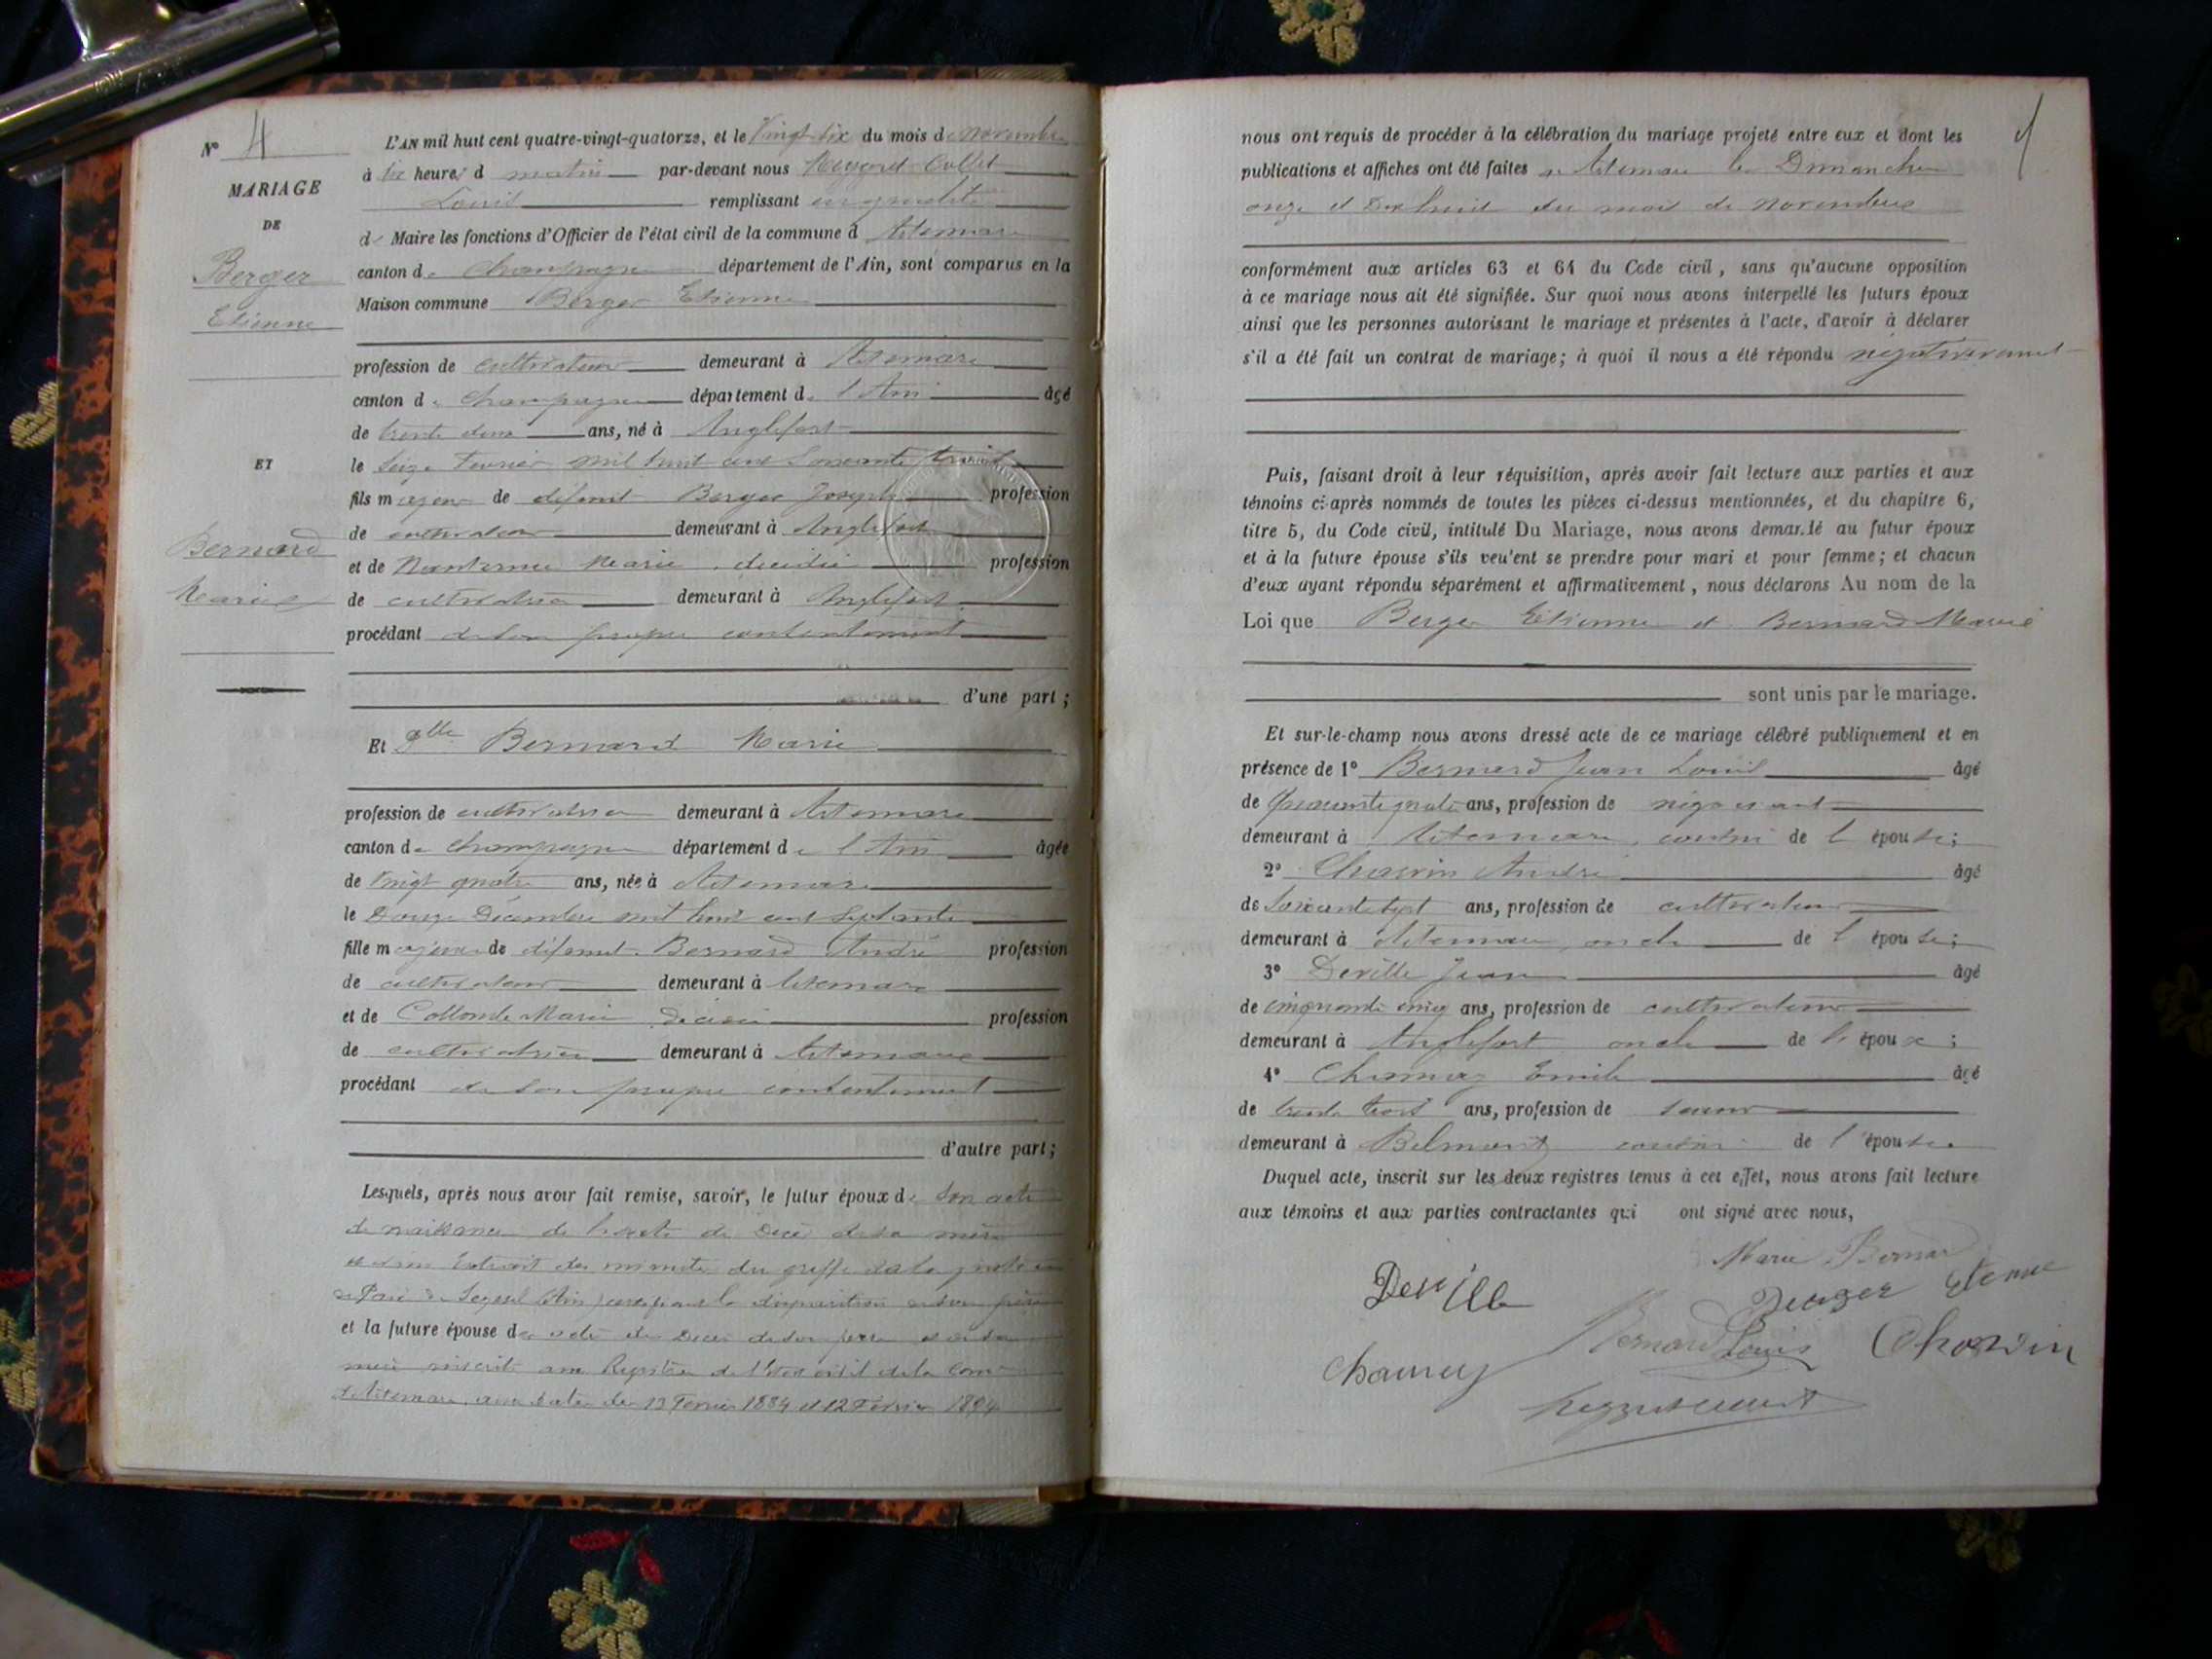 N° 4
MARIAGE
DE
Berger
Etienne
ET
Bernard
Marie
L'AN mil huit cent quatre-vingt-quatorze, et le Vingt six du mois de Novembre
à six heures d matin par-devant nous Collet
Louis remplissant en qualité
de Maire les fonctions d'Officier de l'état civil de la commune d Artemare
canton de Champagne département de l'Ain, sont comparus en la
Maison commune Berger Etienne
profession de cultivateur demeurant à Artemare
canton de Champagne département de l'Ain âgé
de trente deux ans, né à Anglefort
le seize Fevrier mil huit cent soixante trois
fils majeur de défunt Berger Joseph profession
de cultivateur demeurant à Anglefort
et de Marie décédée profession
de cultivatrice demeurant à Anglefort
procédant de son propre consentement
d'une part ;
Et Dlle Bernard Marie
profession de cultivatrice demeurant à Artemare
canton de Champagne département de l'Ain âgée
de vingt quatre ans, née à Artemare
le Douze Décembre mil huit cent septante
fille majeure de défunt Bernard André profession
de cultivateur demeurant à Artemare
et de Collomb Marie décédée profession
de cultivatrice demeurant à Artemare
procédant de son propre consentement
d'autre part ;
Lesquels, après nous avoir fait remise, savoir, le futur époux de son acte
de naissance de l'acte de Décès de sa mère
et d'un Extrait des minutes du greffe de la justice
de Paix de Seyssel (Ain) la disparition de son père
et la future épouse des actes de Décès de son père et de sa
mère inscrits aux Registres de l'état civil de la Com
d'Artemare, aux dates des 13 Fevrier 1884 et 12 Février 1894
nous ont requis de procéder à la célébration du mariage projeté entre eux et dont les
publications et affiches ont été faites à Artemare les Dimanches
onze et Dix huit du mois de Novembre
conformément aux articles 63 et 64 du Code civil, sans qu'aucune opposition
à ce mariage nous ait été signifiée. Sur quoi nous avons interpellé les futurs époux
ainsi que les personnes autorisant le mariage et présentes à l'acte, d'avoir à déclarer
s'il a été fait un contrat de mariage ; à quoi il nous a été répondu négativement
Puis, faisant droit à leur réquisition, après avoir fait lecture aux parties et aux
témoins ci-après nommés de toutes les pièces ci-dessus mentionnées, et du chapitre 6,
titre 5, du Code civil, intitulé Du Mariage, nous avons demandé au futur époux
et à la future épouse s'ils veulent se prendre pour mari et pour femme ; et chacun
d'eux ayant répondu séparément et affirmativement, nous déclarons Au nom de la
Loi que Berger Etienne et Bernard Marie
sont unis par le mariage.
Et sur-le-champ nous avons dressé acte de ce mariage célébré publiquement et en
présence de 1° Bernard Jean Louis âgé
de quarante quatre ans, profession de négociant
demeurant à Artemare, cousin de l'épouse ;
2° Charvin André âgé
de soixante sept ans, profession de cultivateur
demeurant à Artemare, oncle de l'épouse ;
3° Deville Jean âgé
de cinquante cinq ans, profession de cultivateur
demeurant à Anglefort oncle de l'époux ;
4° Emile âgé
de trente trois ans, profession de
demeurant à Belmont cousin de l'épouse
Duquel acte, inscrit sur les deux registres tenus à cet effet, nous avons fait lecture
aux témoins et aux parties contractantes qui ont signé avec nous,
Marie Bernard
Deville Berger Etienne
Bernard Louis Charvin